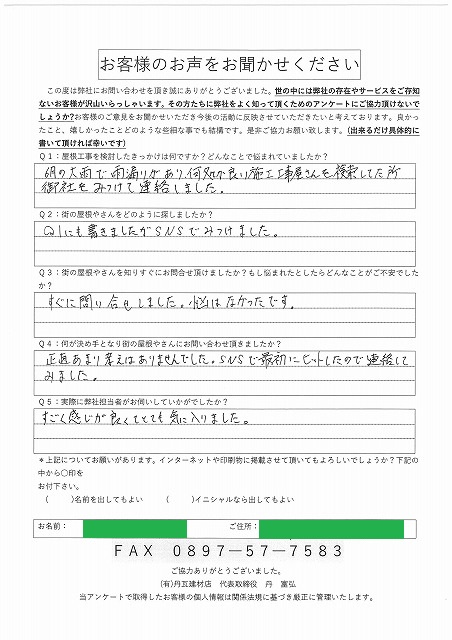 お客様のお声をお聞かせください
この度は弊社にお問い合わせを頂き誠にありがとうございました。世の中には弊社の存在やサービスをご存知
ないお客様が沢山いらっしゃいます。その方たちに弊社をよく知って頂くためのアンケートにご協力頂けないで
しょうか?お客様のご意見をお聞かせいただき今後の活動に反映させていただきたいと考えております。良かっ
たこと、嬉しかったことどのような些細な事でも結構です。是非ご協力お願い致します。(出来るだけ具体的に
書いて頂ければ幸いです)
Q1:屋根工事を検討したきっかけは何ですか?どんなことで悩まれていましたか?
6月の大雨で雨漏りがあり何処か良い施工工事屋さんを検索してた所
御社をみつけて連絡しました。
Q2:街の屋根やさんをどのように探しましたか?
Q1にも書きましたがSNSでみつけました。
Q3:街の屋根やさんを知りすぐにお問合せ頂けましたか?もし悩まれたとしたらどんなことがご不安でした
か?
すぐに問い合せしました。悩はなかったです。
Q4:何が決め手となり街の屋根やさんにお問い合わせ頂きましたか?
正直あまり考えはありませんでした。SNSで最初にヒットしたので連絡して
みました。
Q5:実際に弊社担当者がお伺いしていかがでしたか?
すごく感じが良くてとても気に入りました。
*上記についてお願いがあります。インターネットや印刷物に掲載させて頂いてもよろしいでしょうか?下記の
中から〇印を
お付下さい。
( )名前を出してもよい ( )イニシャルなら出してもよい
お名前: ご住所:
FAX 0897-57-7583
ご協力ありがとうございました。
(有)丹瓦建材店 代表取締役 丹 富弘
当アンケートで取得したお客様の個人情報は関係法規に基づき厳正に管理いたします。